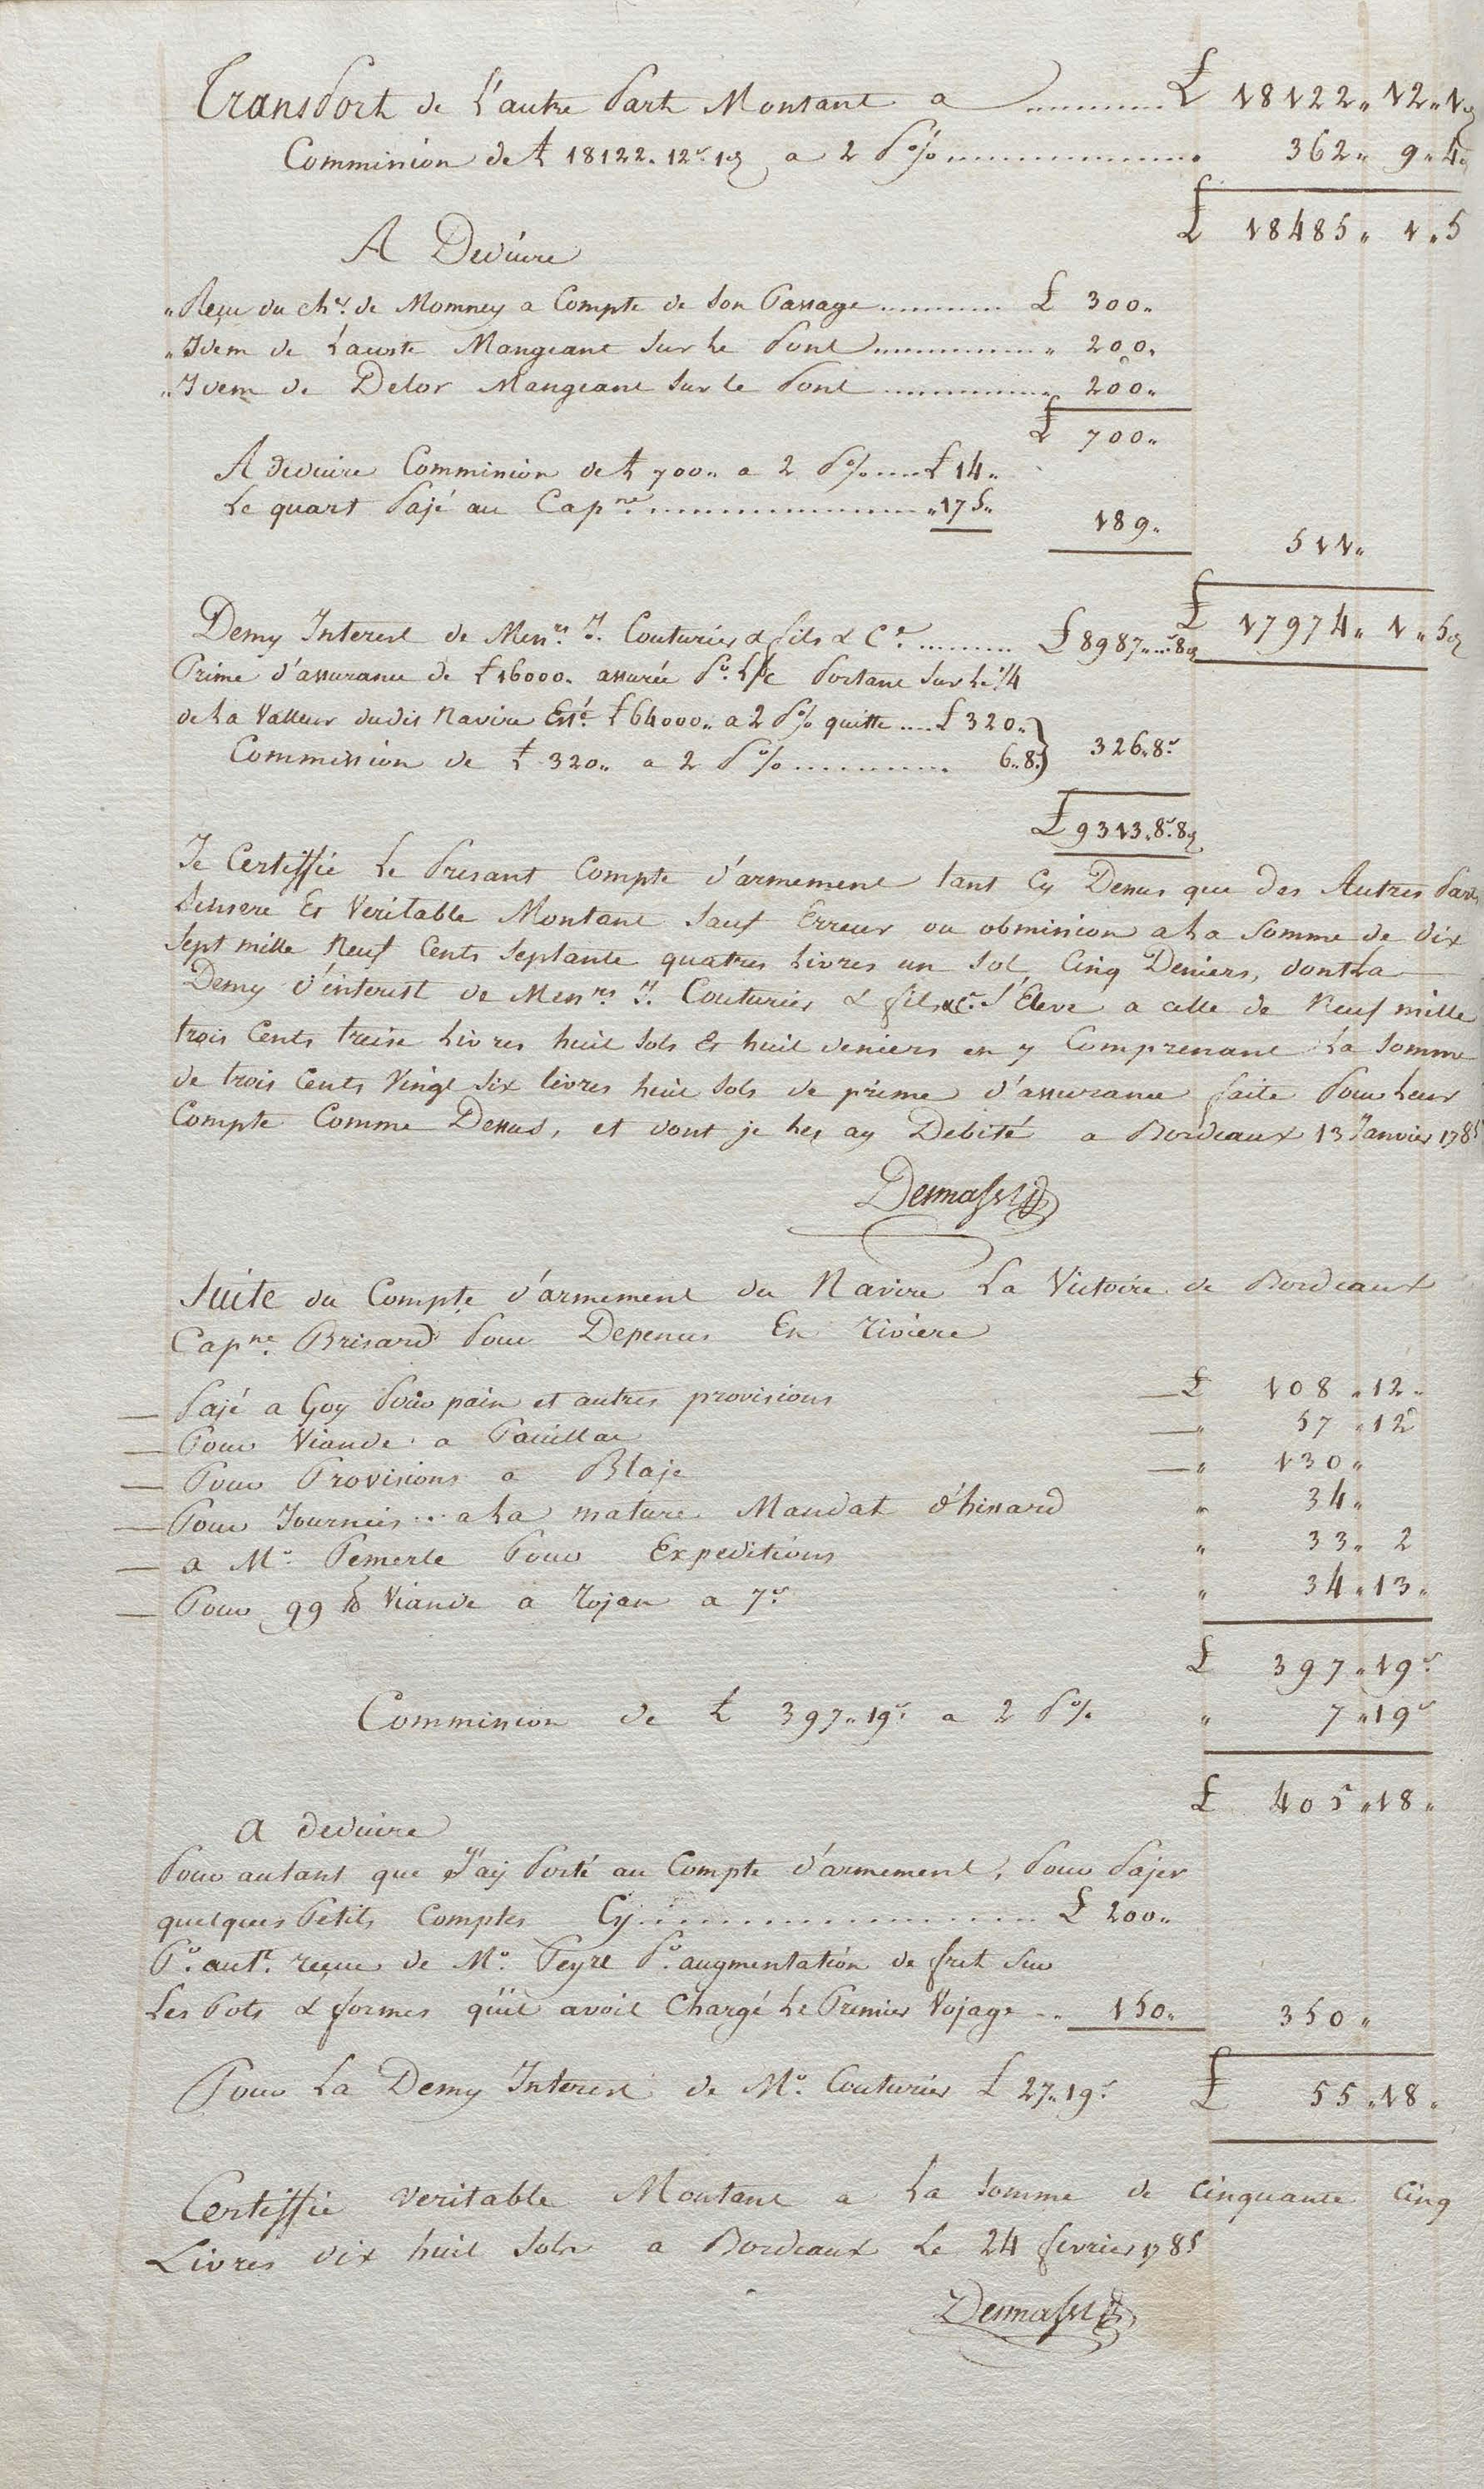 TransPort de L'autre Part Montant a ........... £ 18122 " 12 " 1 ₰
Commission de £ 18122 " 12ˢ 1 ₰ a 2 P% .................. 362 " 9 " 4 "
£ 18485 " 1 " 5
A Deduire
" Reçu du chᵉʳ de Momney a Compte de Son Passage ........... £ 300 "
" Idem de Lauste Mangeant Sur Le Pont ................ " 200 "
" Idem de Delor Mangeant Sur le Pont ................ " 200 "
£ 700 "
A deduire Commission de £ 700 " a 2 P% .... £ 14 "
Le quart Pajé au Capⁿᵉ ...................... " 175 " 189 " 511 "
£ 17974 " 1 " 5 ₰
Demy Interest de Messʳˢ J. Couturier & fils & Cᵉ ......... £ 8987 " .. ˢ 8 ₰
Prime d'assurance de £ 16000 " assurée Pʳ L/C Portant Sur Le 1/4
de La Valleur dudit Navire Estᵉ £ 64000 " a 2 P% quitte .... £ 320 "
Commission de £ 320 " a 2 P% ............. 6 " 8 " } 326 " 8ˢ
£ 9313 " 8ˢ 8 ₰
Je Certiffie Le Presant Compte d'armement tant Cy Dessus que des Autres Parts
Sinsere Et Veritable Montant Sauf Erreur ou obmission a La Somme de dix
Sept mille Neuf Cents Septante quatres Livres un Sol Cinq Deniers, dont La
Demy d'interest de Messʳˢ J. Couturier & fils & Cᵉ S'Eleve a celle de Neuf mille
trois Cents treise Livres huit Sols Et huit deniers en y Comprenant La Somme
de trois Cents Vingt Six livres huit Sols de prime d'assurance faite Pour Leur
Compte Comme Dessus, et dont je les ay Debité a Bordeaux 13 Janvier 1785
Suite du Compte d'armement du Navire La Victoire de Bordeaux
Capⁿᵉ Brisard Pour Depenses En Riviere
— Pajé a Goy Pour pain et autres provisions — £ 108 " 12 "
— Pour Viande a Pauillac — " 57 " 12
— Pour Provisions a Blaje — " 130 "
— Pour Journées .. a La mature Mandat d'hissard " 34 "
— a Mʳ Pemerle Pour Expeditions " 33 " 2
— Pour 99 ℔ Viande a Rojan a 7ˢ " 34 " 13 "
£ 397 " 19ˢ
Commission de £ 397 " 19ˢ a 2 P% " 7 " 19ˢ
£ 405 " 18 "
a deduire
Pour autant que J'aÿ Porté au Compte d'armement, Pour Pajer
quelques Petits Comptes Cy ........................ £ 200 "
Pʳ autᵗ reçue de Mʳ Peyre Pʳ augmentation de fret Sur
Les Pots & formes qu'il avoit Chargé Le Premier Vojage .. 150 " 350 "
Pour La Demy Interest de Mʳ Couturier £ 27 " 19ˢ £ 55 " 18 "
Certiffie veritable Montant a La Somme de cinquante Cinq
Livres dix huit Sols a Bordeaux Le 24 fevrier 1785